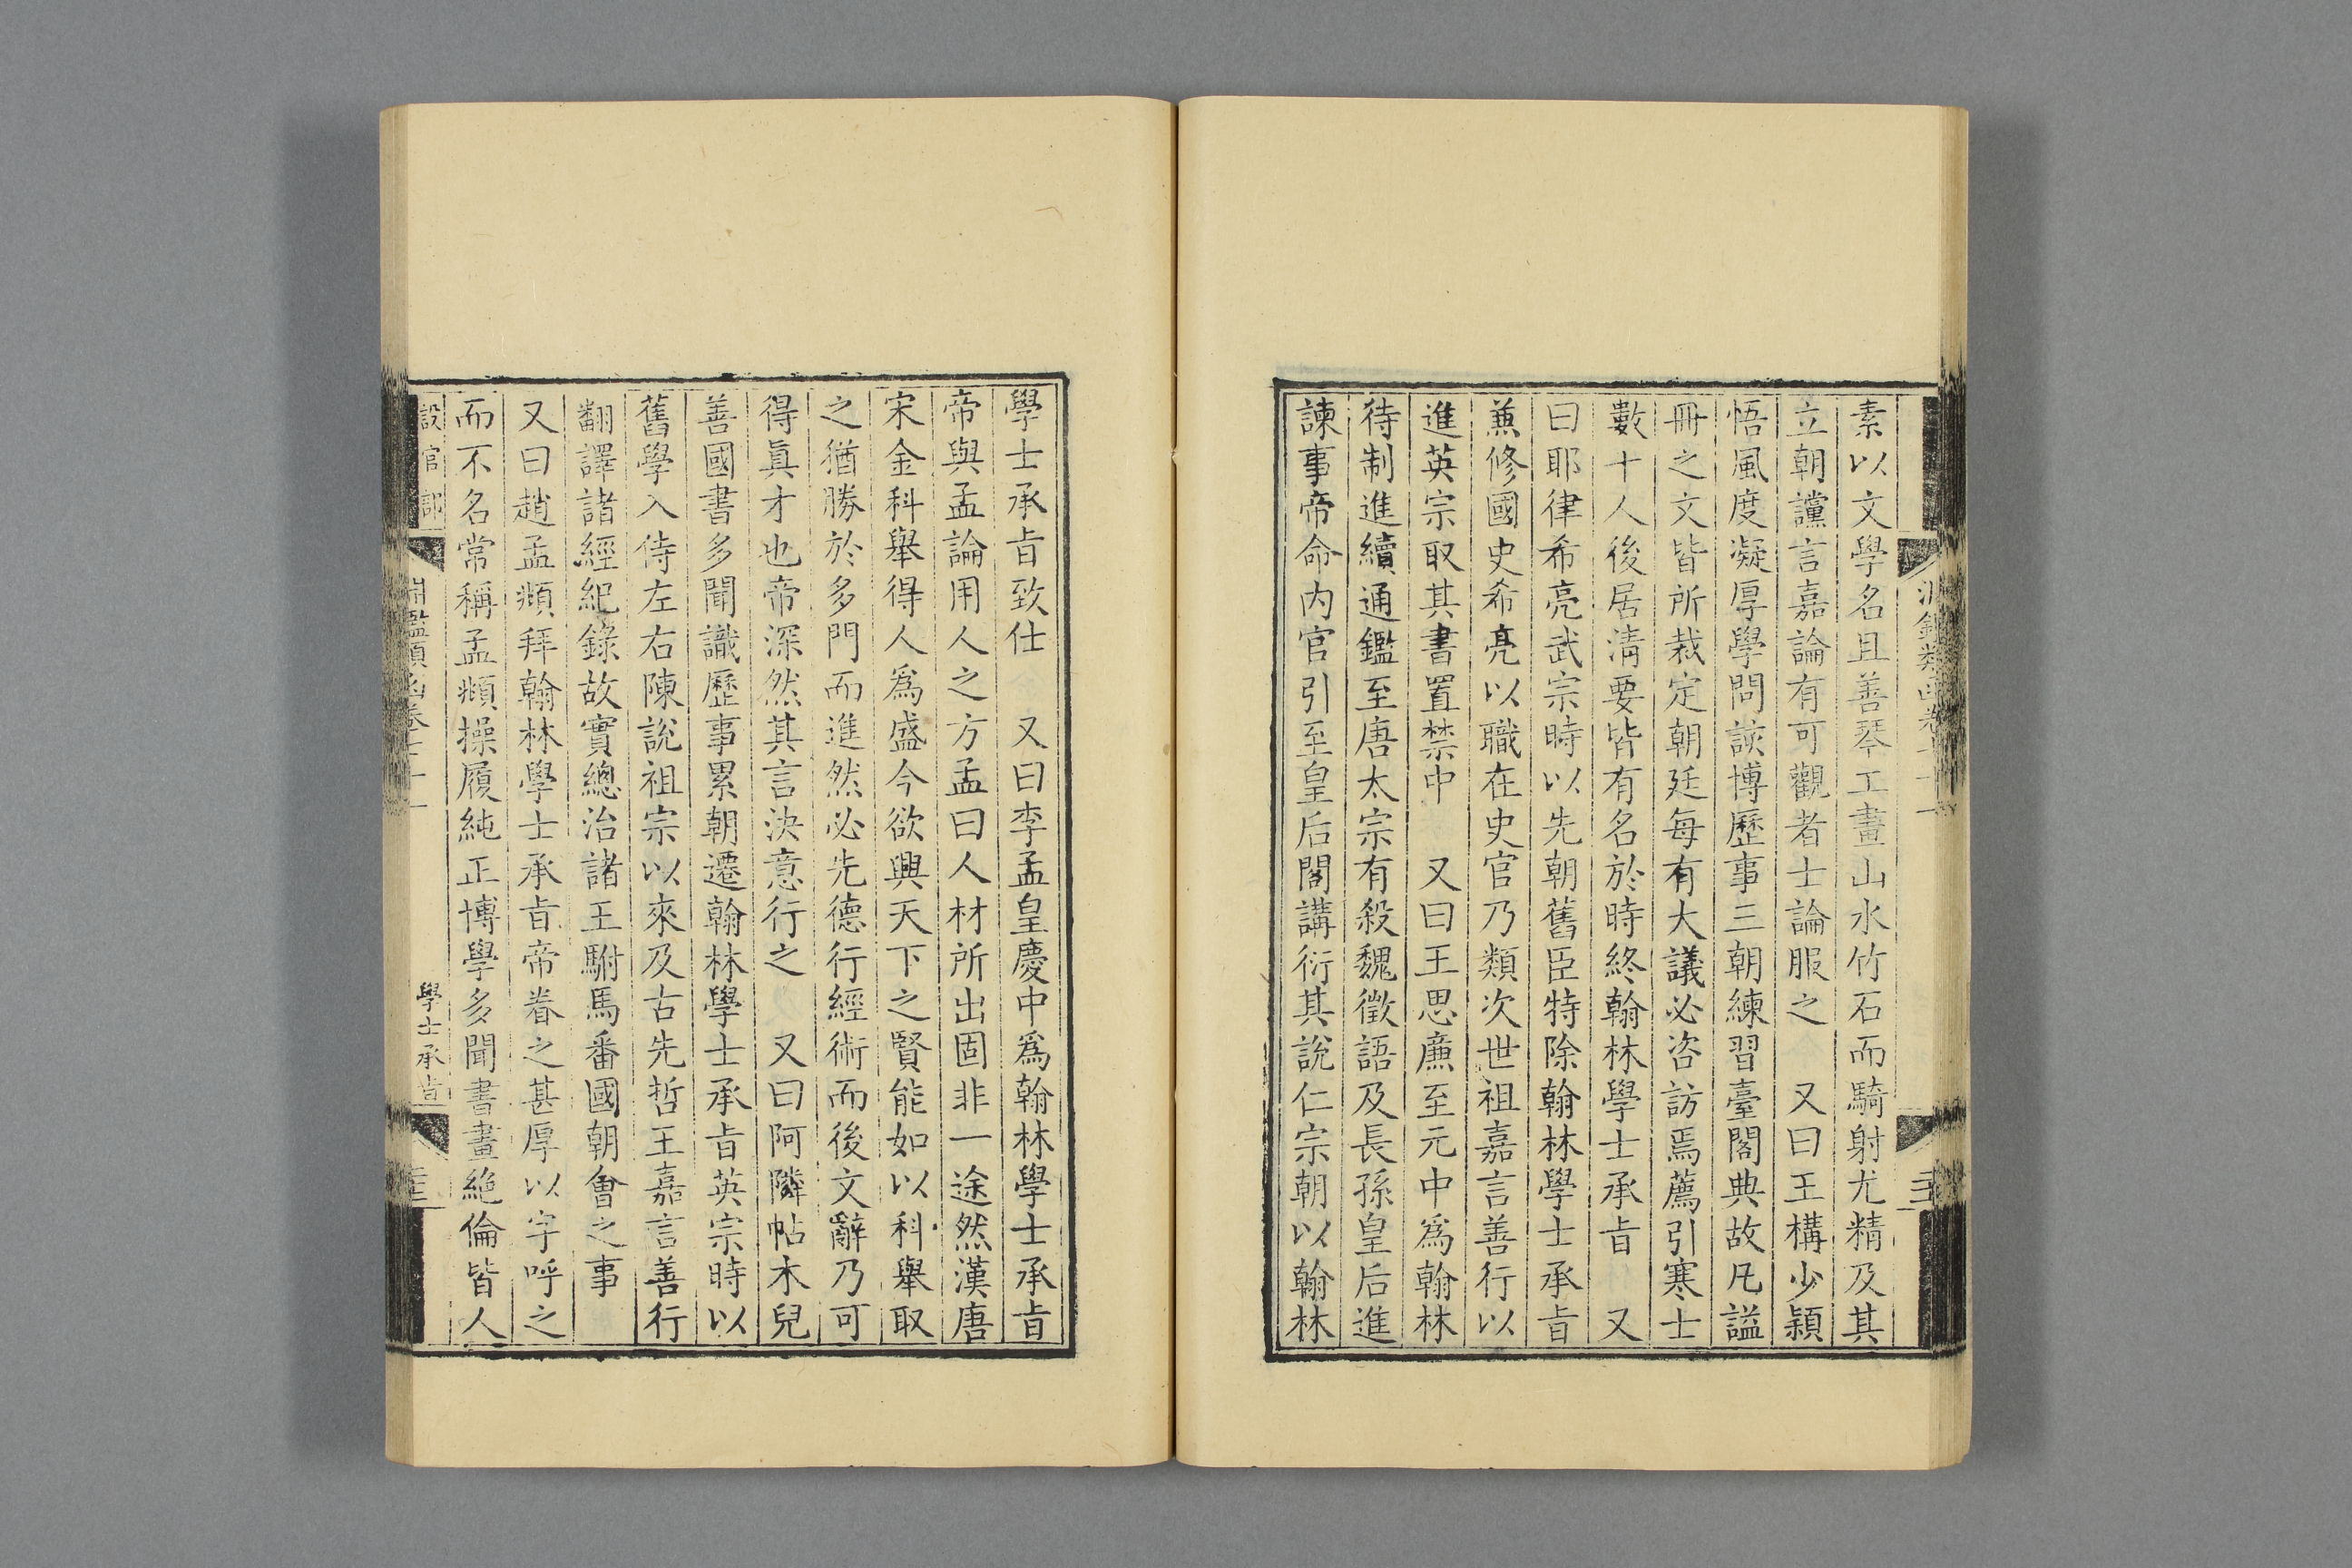 素以文學名且善琴工畫山水竹石而騎射尤精及其
立朝讜言嘉論有可觀者士論服之　又曰王構少穎
悟風度凝厚學問該博歷事三朝練習臺閣典故凡謚
冊之文皆所裁定朝廷每有大議必咨訪焉薦引寒士
數十人後居清要皆有名於時終翰林學士承旨　又
曰耶律希亮武宗時以先朝舊臣特除翰林學士承旨
兼修國史希亮以職在史官乃類次世祖嘉言善行以
進英宗取其書置禁中　又曰王思廉至元中爲翰林
待制進續通鑑至唐太宗有殺魏徵語及長孫皇后進
諫事帝命内官引至皇后閣講衍其說仁宗朝以翰林
學士承旨致仕　又曰李孟皇慶中爲翰林學士承旨
帝與孟論用人之方孟曰人材所出固非一途然漢唐
宋金科舉得人爲盛今欲興天下之賢能如以科舉取
之猶勝於多門而進然必先德行經術而後文辭乃可
得眞才也帝深然其言決意行之　又曰阿隣帖木兒
善國書多聞識歷事累朝遷翰林學士承旨英宗時以
舊學入侍左右陳說祖宗以來及古先哲王嘉言善行
翻譯諸經紀錄故實總治諸王駙馬番國朝會之事
又曰趙孟頫拜翰林學士承旨帝眷之甚厚以字呼之
而不名常稱孟頫操履純正博學多聞書畫絶倫皆人
設官部
學士承旨